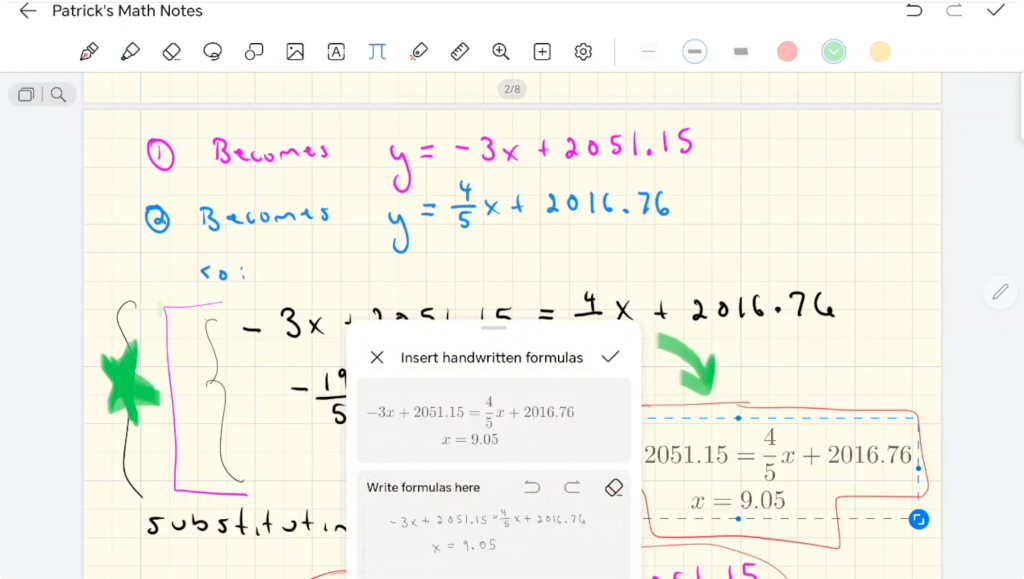 Patrick's Math Notes
2/8
① Becomes y = -3x + 2051.15
② Becomes y = 4/5 x + 2016.76
so:
-3x + 2051.15 = 4/5 x + 2016.76
Insert handwritten formulas
-3x + 2051.15 = 4/5 x + 2016.76
x = 9.05
Write formulas here
-3x + 2051.15 = 4/5 x + 2016.76
x = 9.05
2051.15 = 4/5 x + 2016.76
x = 9.05